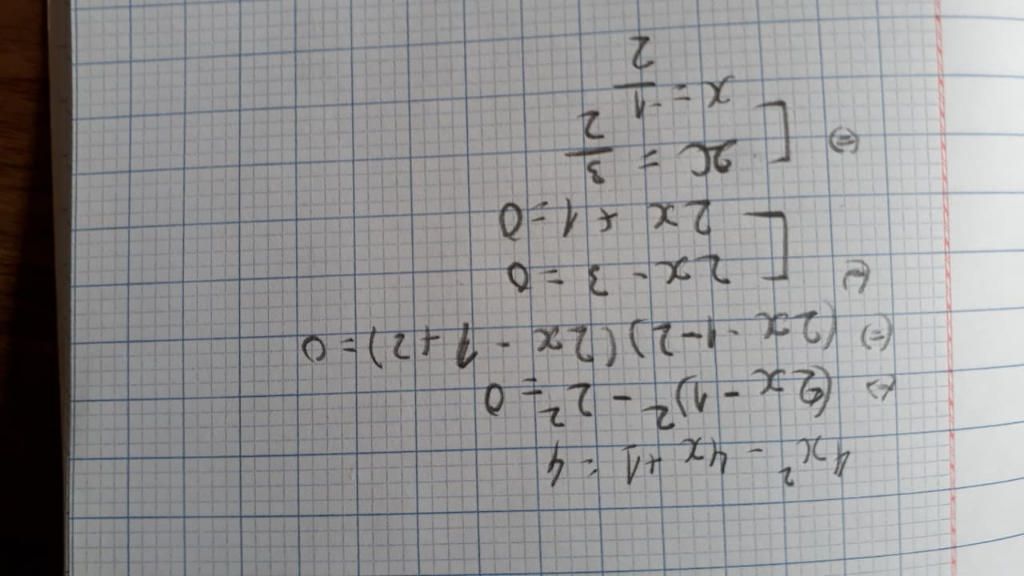 4x² - 4x + 1 = 4
(=) (2x - 1)² - 2² = 0
(=) (2x - 1 - 2)(2x - 1 + 2) = 0
(=) [ 2x - 3 = 0
2x + 1 = 0
(=) [ x = 3/2
x = -1/2